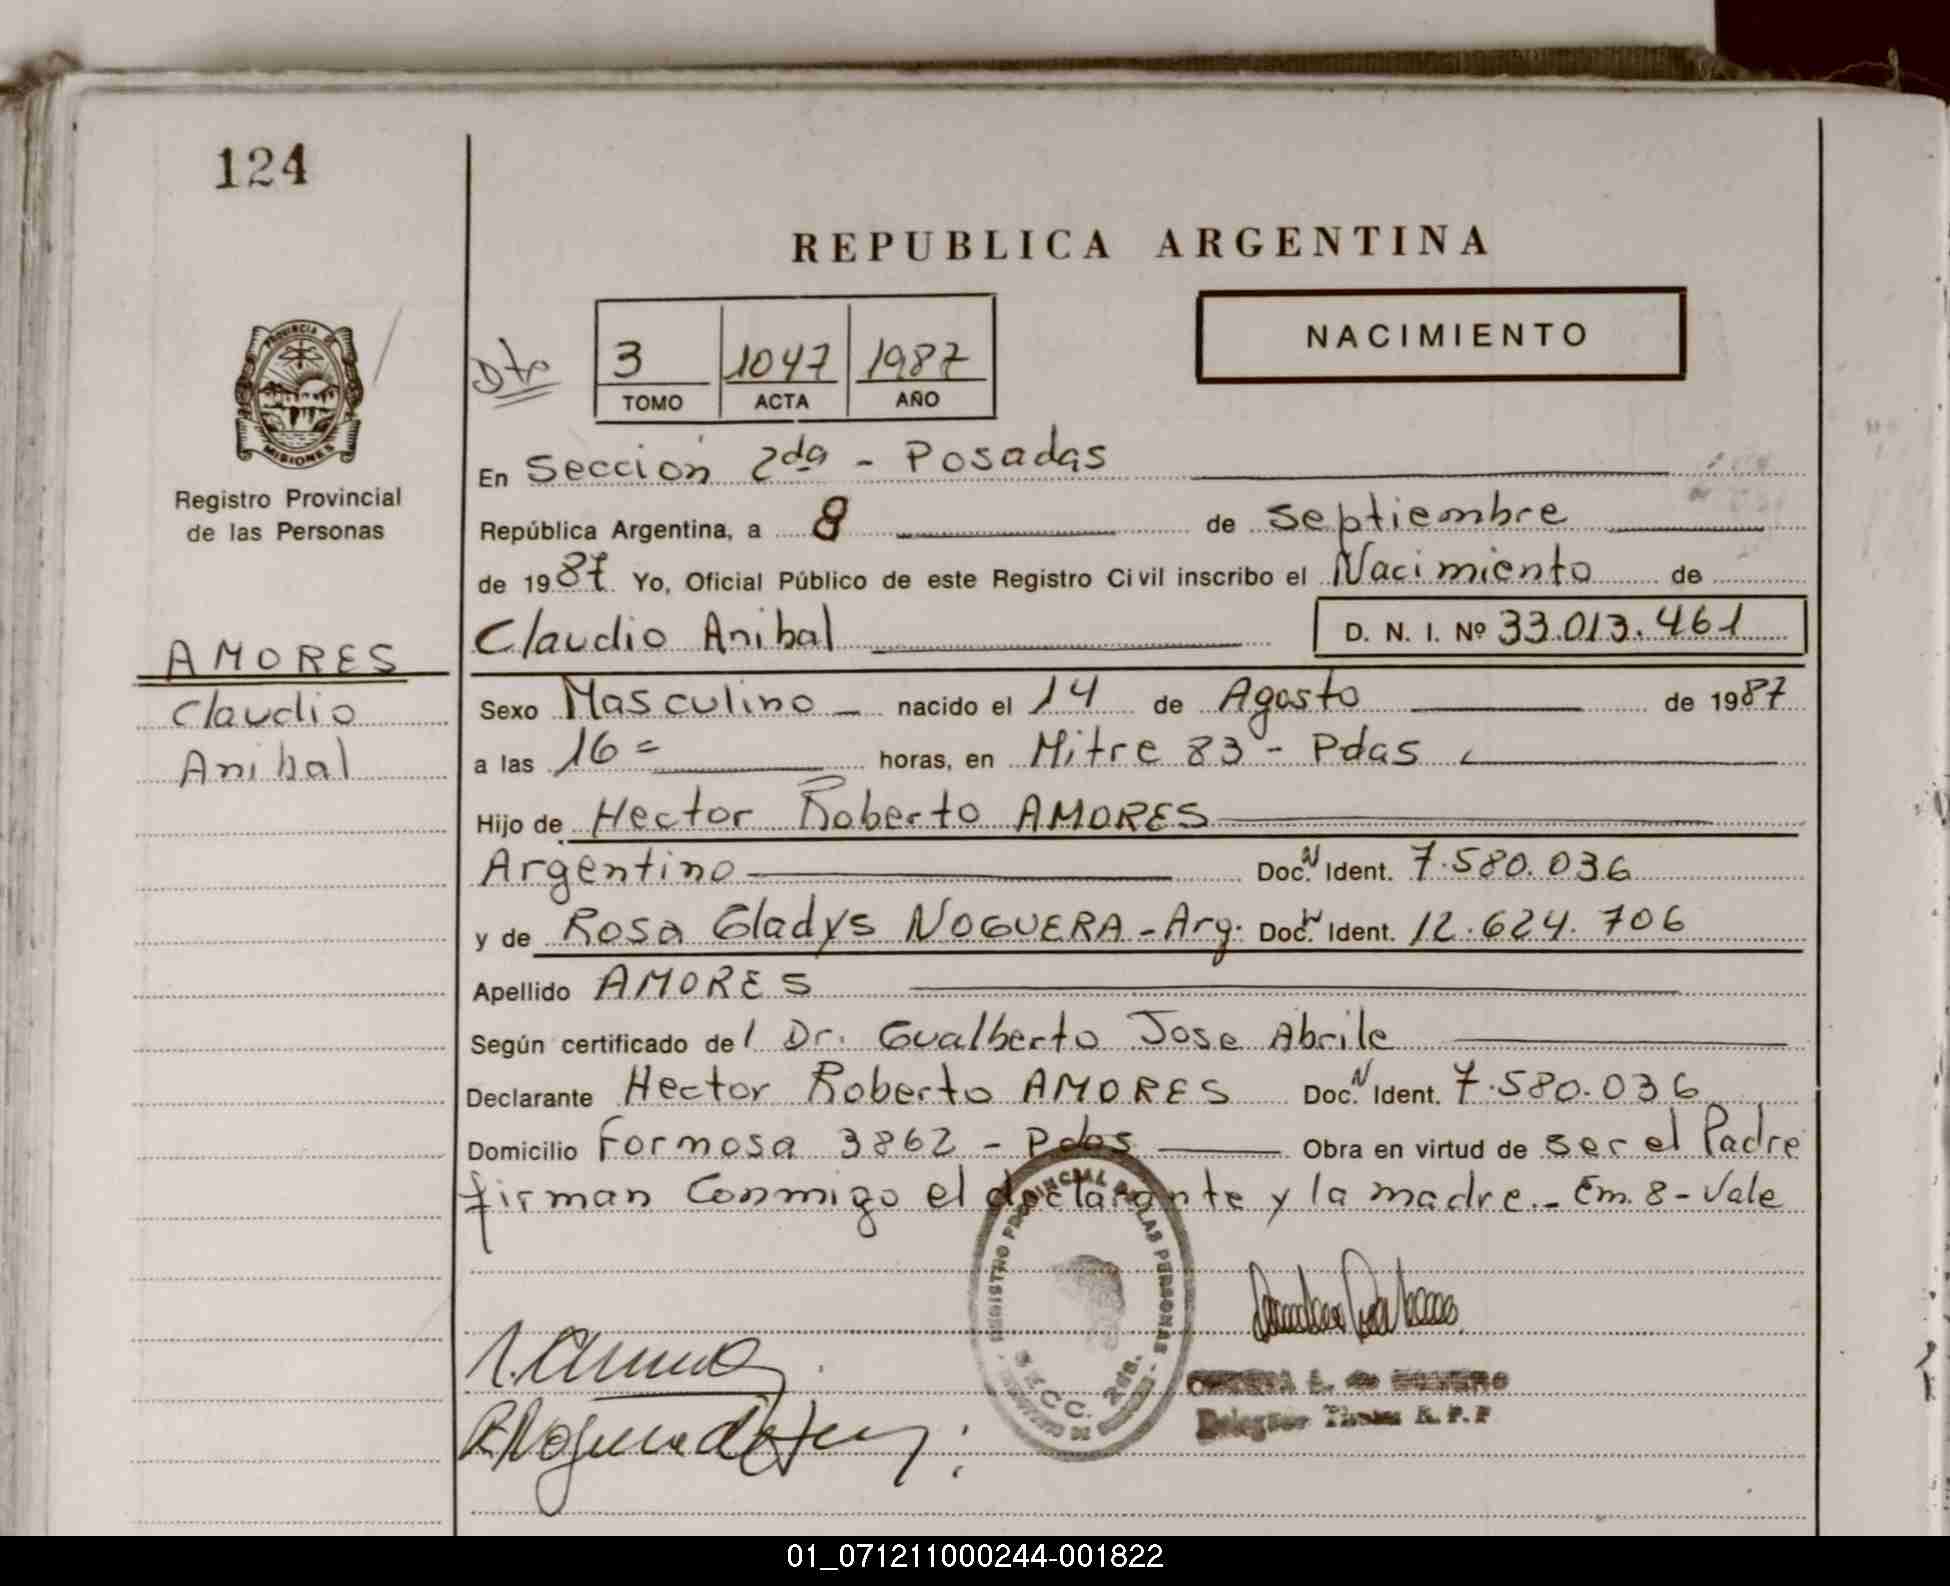 124
REPUBLICA ARGENTINA
NACIMIENTO
Dto
3 1047 1987
TOMO ACTA AÑO
PROVINCIA DE
MISIONES
Registro Provincial
de las Personas
En Sección 2da - Posadas
República Argentina, a 8 de septiembre
de 1987. Yo, Oficial Público de este Registro Civil inscribo el Nacimiento de
Claudio Anibal D. N. I. Nº 33.013.461
AMORES
Claudio
Anibal
Sexo Masculino nacido el 14 de Agosto de 1987
a las 16 = horas, en Mitre 83 - Pdas
Hijo de Hector Roberto AMORES
Argentino Doc. N Ident. 7.580.036
y de Rosa Gladys NOGUERA - Arg. Doc. N Ident. 12.624.706
Apellido AMORES
Según certificado del Dr. Gualberto Jose Abrile
Declarante Hector Roberto AMORES Doc. N Ident. 7.580.036
Domicilio Formosa 3862 - Pdas Obra en virtud de ser el Padre
firman conmigo el declarante y la madre.- Em. 8 - Vale
REGISTRO PROVINCIAL DE LAS PERSONAS
SECC. 2da.
R. P. P
01_071211000244-001822